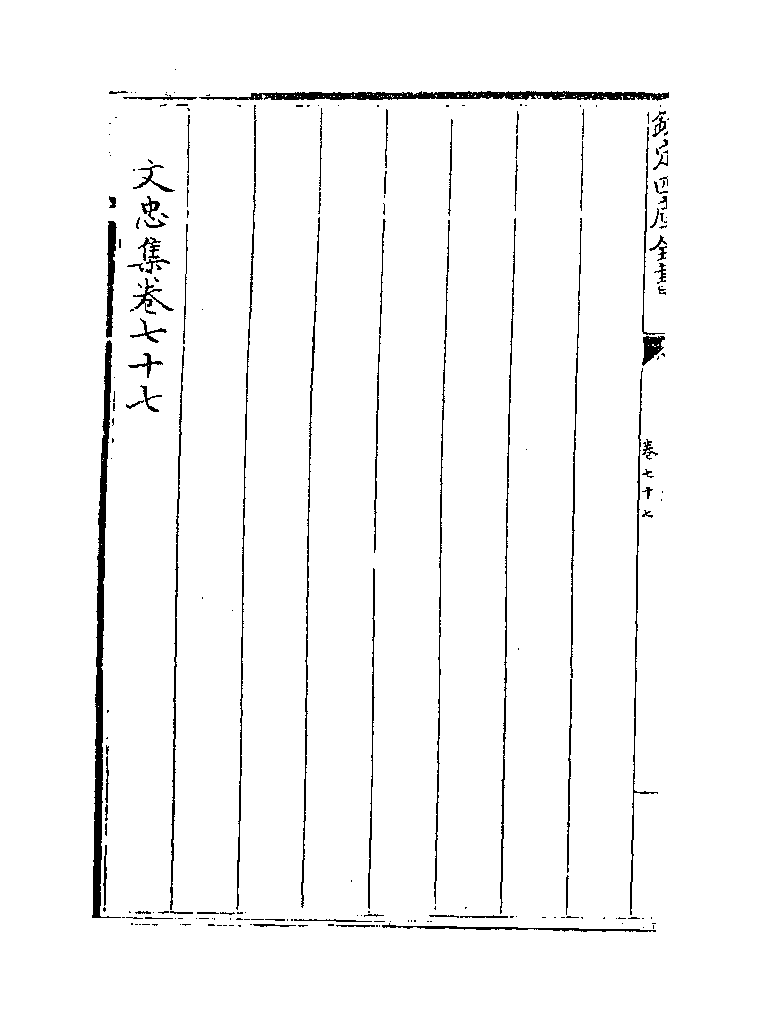 欽定四庫全書
卷七十七
文忠集卷七十七